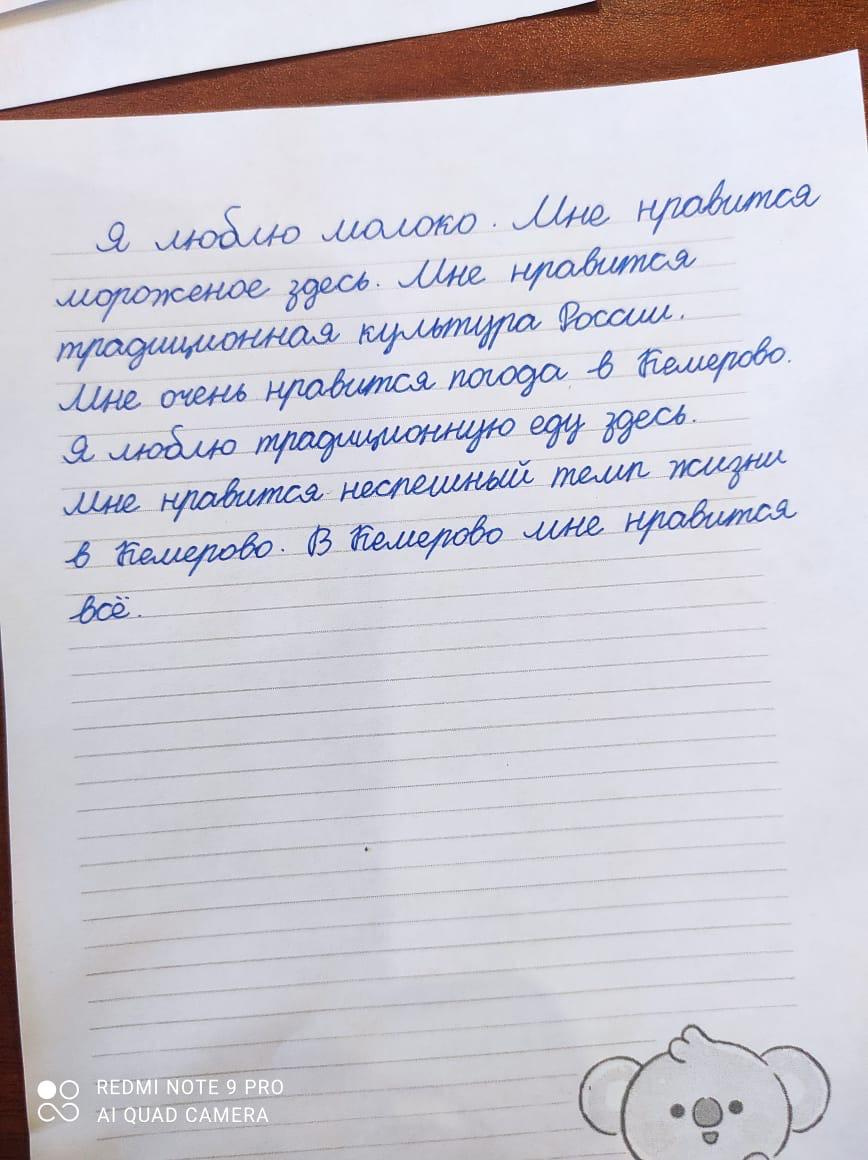 Я люблю молоко. Мне нравится
мороженое здесь. Мне нравится
традиционная культура России.
Мне очень нравится погода в Кемерово.
Я люблю традиционную еду здесь.
Мне нравится неспешный темп жизни
в Кемерово. В Кемерово мне нравится
всё.
REDMI NOTE 9 PRO
AI QUAD CAMERA